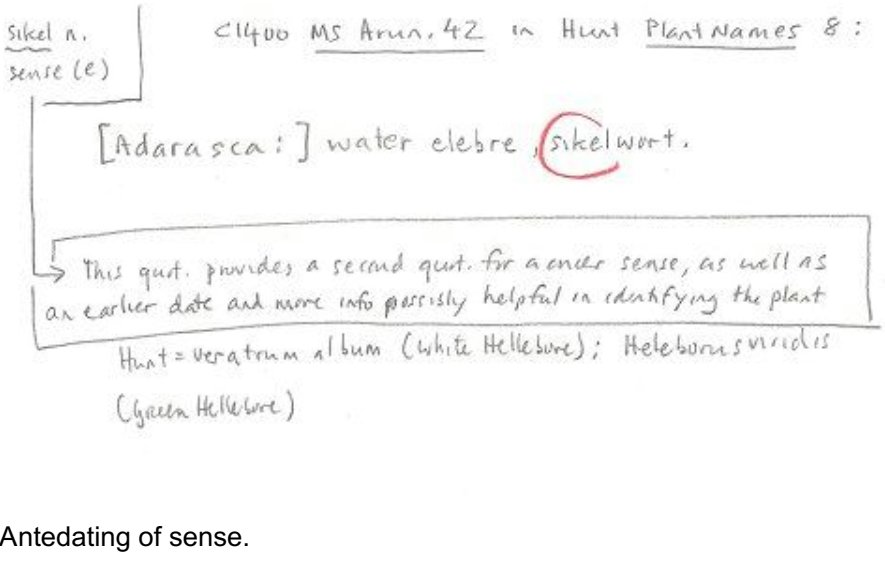 sikel n.
sense (e)
C1400 MS Arun. 42 in Hunt Plant Names 8:
[Adarasca:] water elebre, sikelwort.
This quot. provides a second quot. for a sense, as well as
an earlier date and more info possibly helpful in identifying the plant
Hunt = veratrum album (White Hellebore); Heleborus viridis
(Green Hellebore)
Antedating of sense.